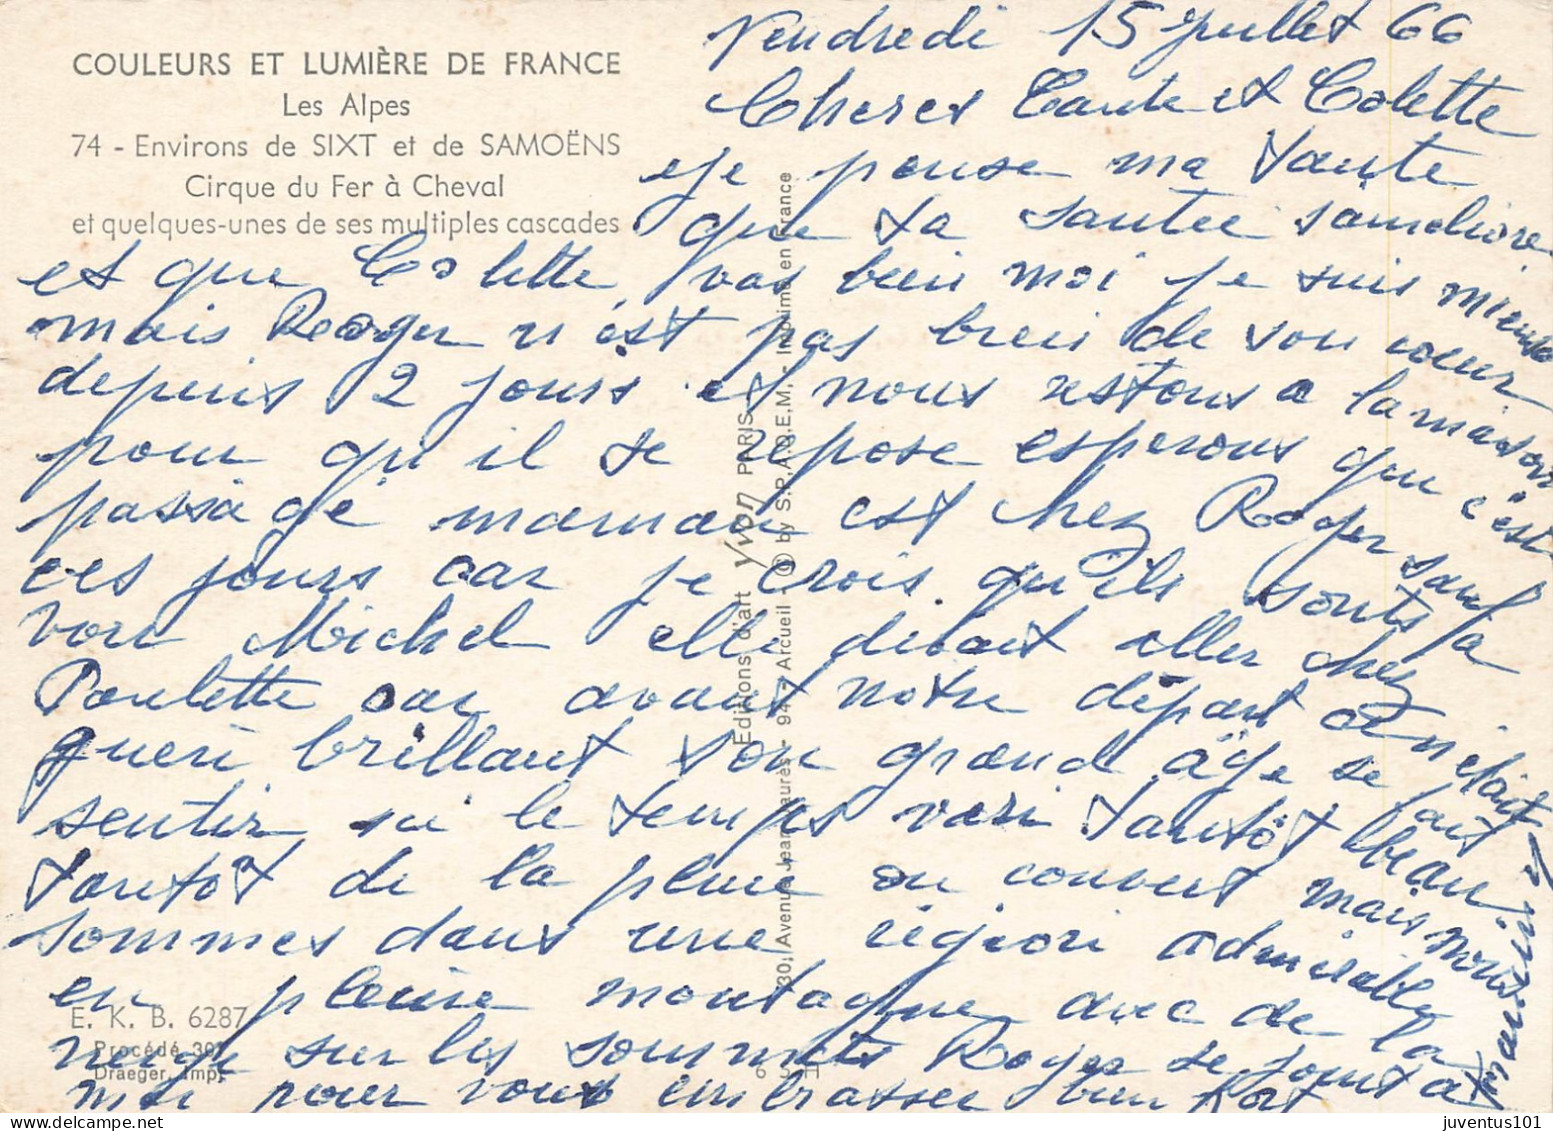 COULEURS ET LUMIÈRE DE FRANCE
Les Alpes
74 - Environs de SIXT et de SAMOËNS
Cirque du Fer à Cheval
et quelques-unes de ses multiples cascades
Vendredi 15 juillet 66
Cheres Tante et Colette
je pense ma Tante
que ta santée s'ameliore
et que Colette, vas bien moi je suis mieux
mais Roger n'est pas bien de son coeur
depuis 2 jours et nous restons a la maison
pour qu'il se repose esperons que c'est
passagé maman est chez Roger
ces jours car je crois qu'ils sonts
voir Michel elle devait aller chez
Poulette car avant notre départ
gueri brillant son grand âge se fait
sentir ici le temps vari tantôt beau
tantot de la pluie ou couvert mais nous
sommes dans une région admirable
en pleine montagne avec de la
neige sur les sommets Roger se joint a
moi pour vous embrasser bien fort
Editions d'art Yvon PARIS
30, Avenue Jean-Jaurès - 94 - Arcueil - © by S.P.A.D.E.M. - Imprimé en France
E. K. B. 6287
Procédé 301
Draeger, Imp.
juventus101